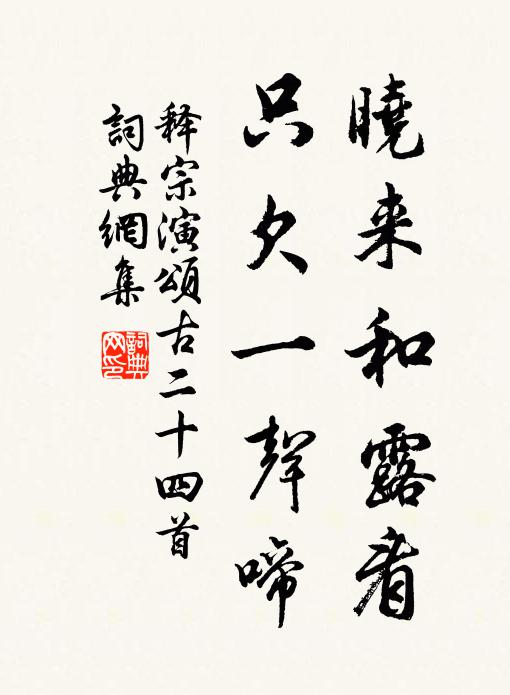 曉来和露看
只欠一聲啼
释宗演頌古二十四首
詞典網集
詞典网印